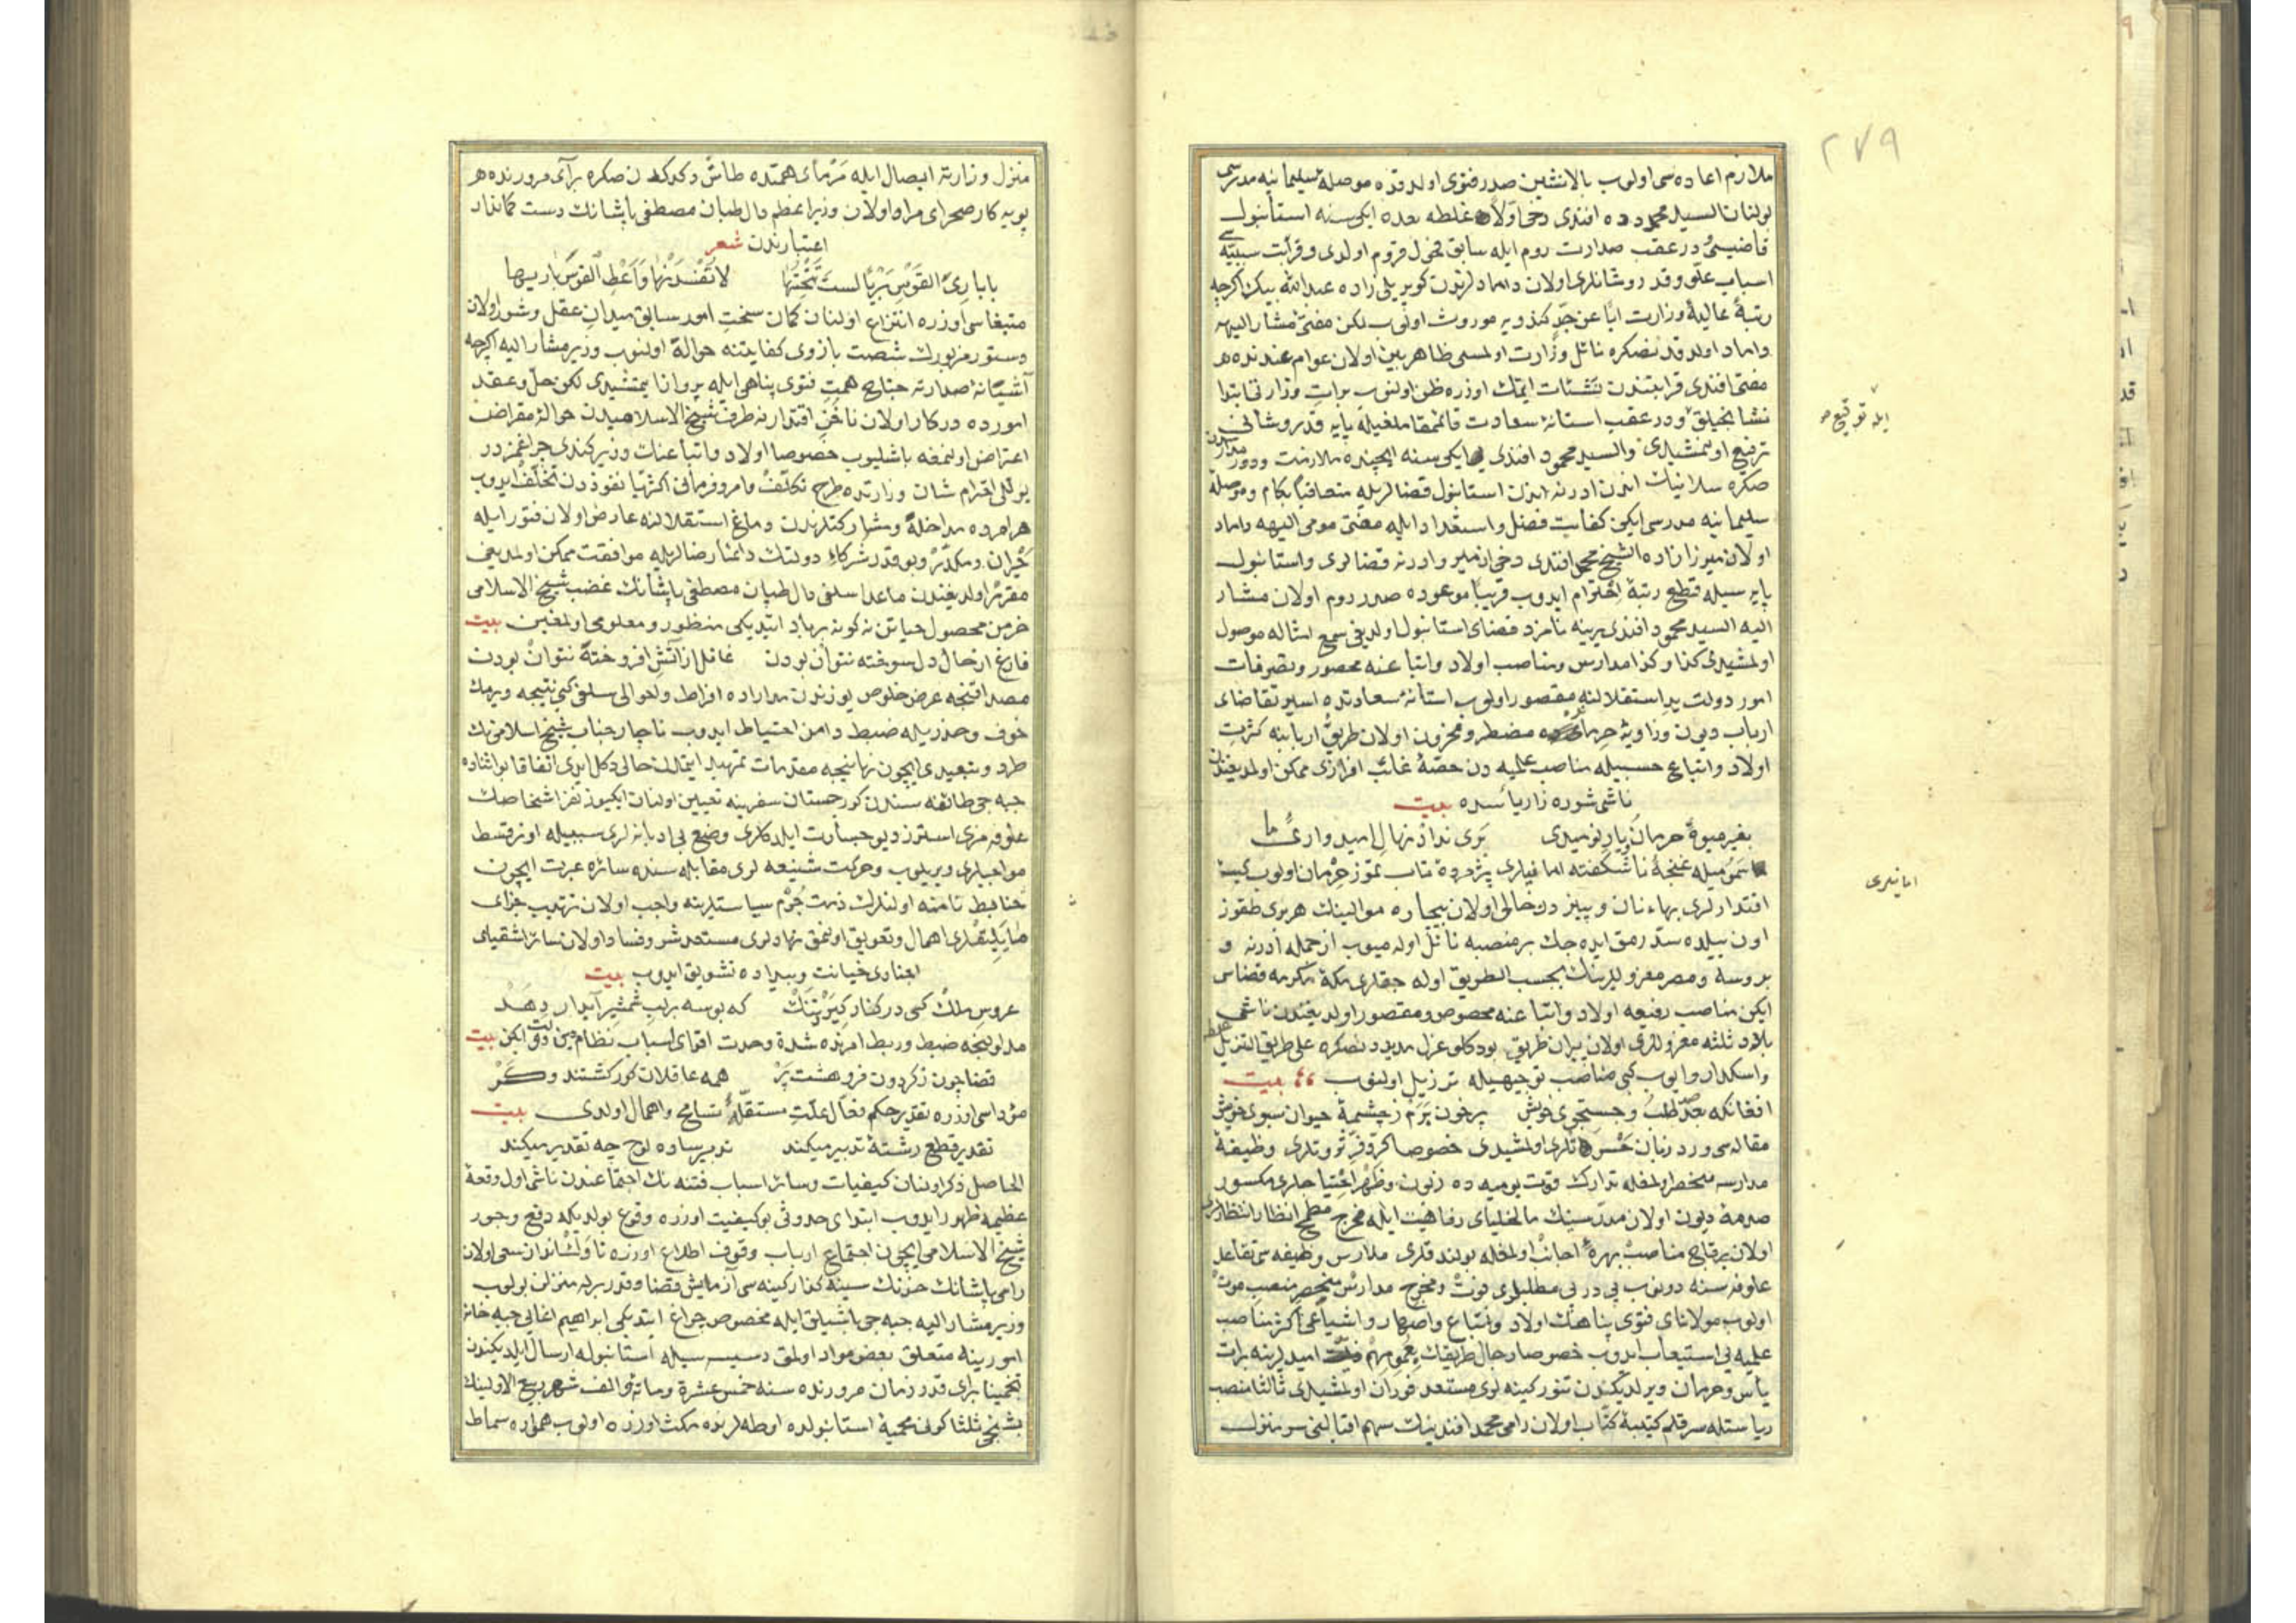 ٢٧٩
ملازم اعاده سی اولوب بالانشین صدر فتوی اولدقده موصله سلیمانیه مدرسی
بولنان السید محمد دده افندی دخی اولا غلطه بعده ایکی سنه استانبول
قاضیسی و در عقب صدارت روم ایله سابق اولدی و قرابت سببیه
اسباب علو و قدر و شانلری اولان دامادلرندن کوپریلی زاده عبدالله بیک اکرچه
رتبهٔ عالیهٔ وزارت ابا عن جد کندویه موروث اولوب لکن مفتئ مشار الیهه
داماد اولدقدنصکره نائل وزارت اولمسی ظاهر بین اولان عوام عندنده هر
مفتی افندی قرابتندن نشئات ایتمک اوزره ظن اولنوب برات وزارتی ابتدا
نشانجیلق و در عقب استانهٔ سعادت قائمقاملغیله پایهٔ قدر و شانی
ایله توقیع
ترفیع اولنمشیدی والسید محمود افندی ایکی سنه ایچنده ملازمت و دور مدارسدن
صکره سلانیک ادرنه استانبول قضالریله متعاقبا بکام و موصلهٔ
سلیمانیه مدرسی ایکن کفایت فضل و استعداد ایله مفتی مومی الیهه داماد
اولان میرزا زاده الشیخ محمد افندی دخی ازمیر و ادرنه قضالری و استانبول
پایه سیله قطع رتبهٔ احترام ایدوب قریبا موعودهٔ صدر روم اولان مشار
الیه السید محمود افندی یرینه نامزد قضای استانبول اولدیغی سمع امثاله موصول
اولمشیدی کذا و کذا مدارس و مناصب اولاد و اتباعنه محصور و تصرفات
امور دولت ید استقلالنه مقصور اولوب استانهٔ سعادتده اسیر تقاضای
ارباب دیون و زاویهٔ حرمانده مضطر و محزون اولان طریق اربابنه کثرت
اولاد و اتباع حسبیله مناصب علمیه دن حصهٔ غائب افرازی ممکن اولمدیغندن
ناشی شوره زار یأسده بیت
بغیر میوهٔ حرمان و یار نومیدی برى ندارد نهال امیدواری ما
سموميله غنجهٔ ناشکفته اما پژمردهٔ تاب تموز حرمان اولوب کیسهٔ
امانیلری
اقتدارلری بهاء نان و پنیردن خالی اولان بیچاره موالینک هربری طقوز
اون ییلده سد رمق ایده جک بر منصبه نائل اوله میوب از جمله ادرنه و
بروسه و مصر معزوللرینک بحسب الطریق اوله جقلری مکهٔ مکرمه قضاسی
ایکن مناصب رفیعه اولاد و اتباعنه مخصوص و مقصور اولدیغندن ناشی
بلاد ثلثه معزوللری اولان پیران طریق بو دکلو عزل مدیددنصکره علی طریق التنزیل غلطه
و اسکدار و ایوب کبی مناصب توجیهیله ترذیل اولنوب بیت
افغانکه بعد طلب و جستجوی خویش پرخون برم ز چشمهٔ حیوان سبوی خویش
مقاله سی ورد زبان اولمشیدی خصوصا کر و فر ثروتلری وظیفهٔ
مدارسه منحصر اولمغله تدارک قوت یومیه ده زبون و ظهر احتیاجلری مکسور
صدمهٔ دیون اولان مدرسینک مالخولیای رفاهیت ایله مخرج مطمح انظار انتظارلری
اولان برقاج مناصب بهرهٔ اجانب اولمغله بولندقلری مدارس وظیفه سی تقاعد
علوفه سنه دونوب پی در پی مطلبلری فوت و مخرج مدارس منحصر منصب موت
اولوب مولانای فتوی پناهک اولاد و اتباع و اصهار و اشیاعی اکثر مناصب
علمیه یی استیعاب ایدوب خصوصا رجال طریقک امیدلرینه برات
یأس و حرمان ویرلدیکندن تنور کینه لری مستعد فوران اولمشیدی ثالثا منصب
ریاستله سر قلم کتیبهٔ کتاب اولان رامی محمد افندینک سهم اقبالنی سر منزل
منزل وزارته ایصال ایله مرمای همتده طاش دکدکدن صکره برآی مرورنده هر
پویه کار صحرای مراد اولان وزیر اعظم دال طبان مصطفی پاشانک دست کماندار
اعتبارندن شعر
یا باری القوس بریا لست تحسنها لا تفسدنها و اعط القوس باریها
مبتغاسی اوزره انتزاع اولنان کمان سخت امور سابق میدان عقل و شعور اولان
دستور مزبورک شصت بازوی کفایتنه حواله اولنوب وزیر مشار الیه اکرچه
آشیانهٔ صدارته جناح همت فتوی پناهی ایله پروانا یتمشیدی لکن حل و عقد
امورده درکار اولان ناخن اقتدارنه طرف شیخ الاسلامیدن حوالهٔ مقراض
اعتراض اولنمغه باشلیوب خصوصا اولاد و اتباعنک وزیر کندی چراغمزدر
یوللی احترام شان وزارتده طرح تکلف و امر و فرمانی اکثریا نفوذدن تخلف ایدوب
هر امرده مداخله و مشارکتلرندن و ملغ استقلالنه عارض اولان فتور ایله
حیران و مکدر و بو قدر شرکاء دولتک دائما رضالریله موافقت ممکن اولمدیغی
مقرر اولدیغندن ماعدا سلفی دال طبان مصطفی پاشانک غضب شیخ الاسلامی
خرمن محصول حیاتن نه کونه برباد ایتدیکی منظور و معلومی اولمغین بیت
فارغ از حال دل سوخته نتوان بودن غافل از آتش افروخته نتوان بودن
مصداقنجه عرض خلوص یوزندن مداراده افراط و احوالی سلفی کبی نتیجه ویرمک
خوف و حذریله ضبط دامن احتیاط ایدوب ناچار جناب شیخ اسلامینک
طرد و تبعیدی ایچون نهانیجه مقدمات تمهید ایتمدن خالی دکل ایدی اتفاقا بو اثناده
جبه جی طائفه سندن کورجستان سفرینه تعیین اولنان ایکیوز نفر اشخاصک
علوفه مزی استرز دیو جسارت ایلدکلری وضع بی ادبانه لری سببیله اون قسط
مواجبلری ویریلوب و حرکت شنیعه لری مقابله سنده سائره عبرت ایچون
ضابط تأمنه اولنه رک ذمت جرم سیاستلرینه واجب اولان ترتیب جزای
مایلیقلری اهمال و تعویق اولنمق نهادلری مستعد شر و فساد اولان سائر اشقیای
اجنادی خیانت و بیداده تشویق ایدوب بیت
عروس ملک کسی در کنار گیرد تنگ که بوسه بر لب شمشیر آبدار دهد
مدلولنجه ضبط و ربط امرنده شدة و حدت اقوای اسباب نظام دین و دولت ایکن بیت
قضا چون ز کردون فرو هشت پر همه عاقلان کور کشتند و کر
مؤداسی اوزره تقدیر حکم فعال علت مستقلهٔ تسامح و اهمال اولدی بیت
تقدیر قطع رشتهٔ تدبیر میکند تدبیر ساده لوح چه تقدیر میکند
الحاصل ذکر اولنان کیفیات و سائر اسباب فتنه نک اجتماعندن ناشی اول وقعهٔ
عظیمه ظهور ایدوب ابتدای حدوثی بو کیفیت اوزره وقوع بولدیکه دفع وجود
شیخ الاسلامی ایچون اجتماع ارباب وقوف اطلاع اوزره ناوک اندازن سعی اولان
رامی پاشانک خدنک سینه کذار کینه سی آزمایش قضا و قدر برله منزلن بولوب
وزیر مشار الیه جبه جی باشیلق ایله مخصوص چراغ ایتدیکی ابراهیم اغایی جبه خانه
امورینه متعلق بعض مواد اولمق دسیسه سیله استانبوله ارسال ایلدیکندن
تخمینا برآی قدر زمان مرورنده سنه خمس عشرة و مائة و الف شهر ربیع الاولینک
بشنجی ثلثا کونی محمیهٔ استانبولده اوطه لرنده مکث اوزره اولوب همواره سماط